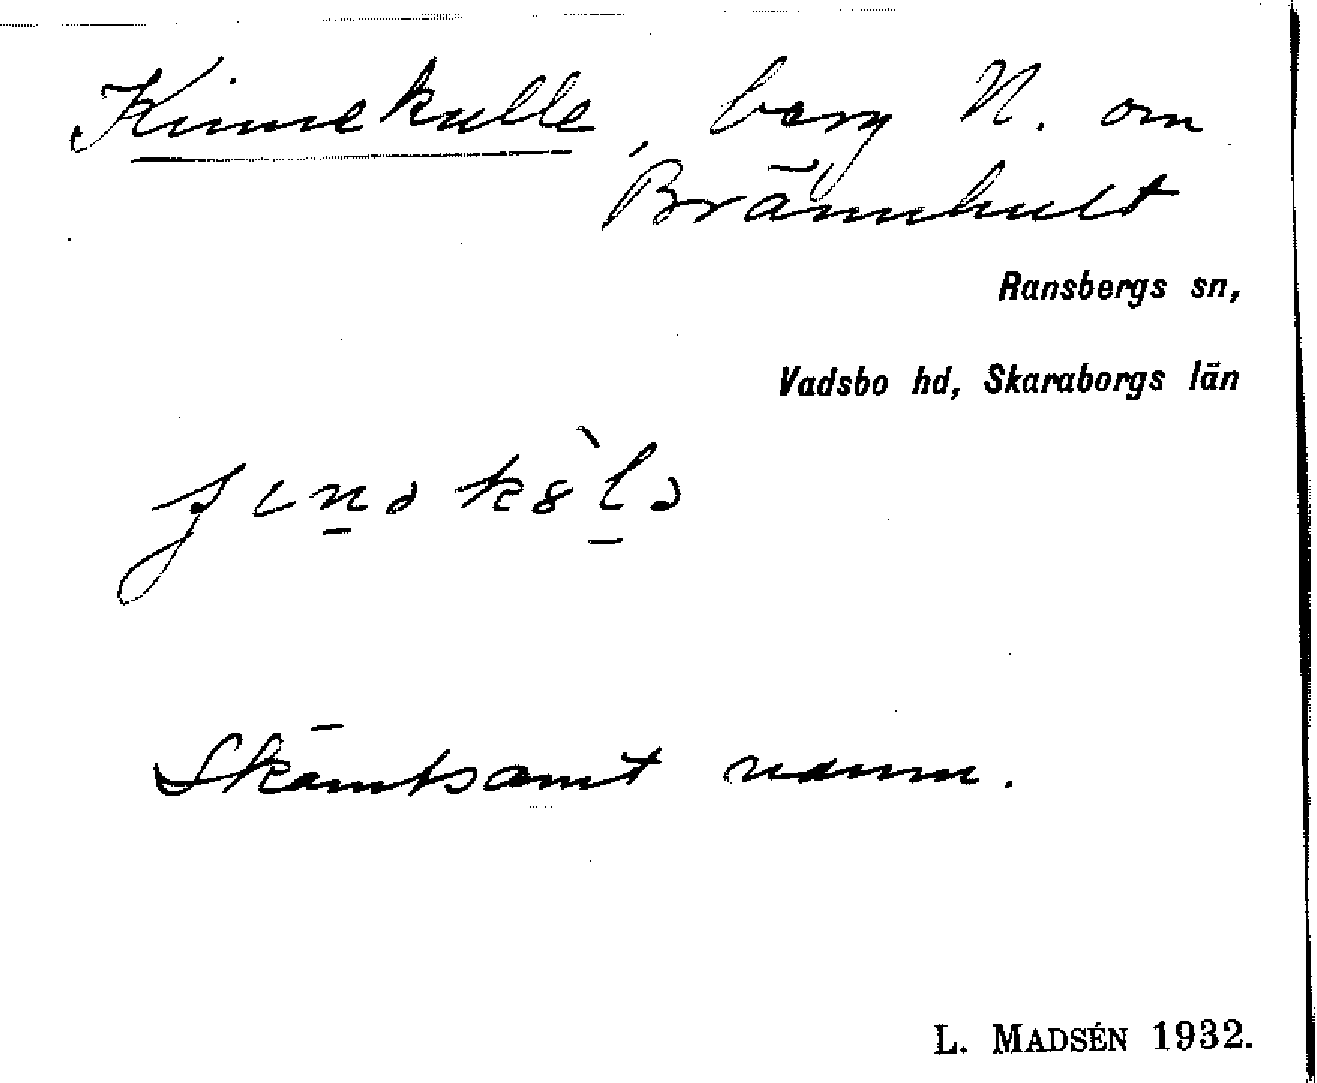 Kinnekulle, berg N. om
Brännhult
Ransbergs sn,
Vadsbo hd, Skaraborgs län
Skämtsamt namn.
L. MADSÉN 1932.